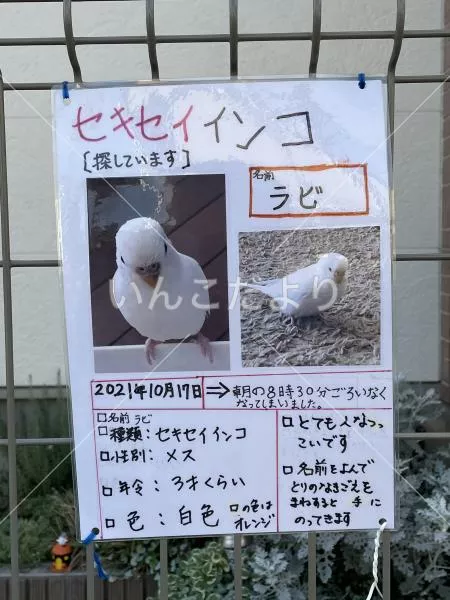 セキセイインコ
[探しています]
名前
ラビ
いんこだより
2021年10月17日 ⇒ 朝の8時30分ごろいなく
なってしまいました。
□名前 ラビ
□種類：セキセイインコ
□性別：メス
□年令：3才くらい
□色：白色 □の色は
オレンジ
□とても人なつっ
こいです
□名前をよんで
とりのなきごえを
まねすると 手に
のってきます